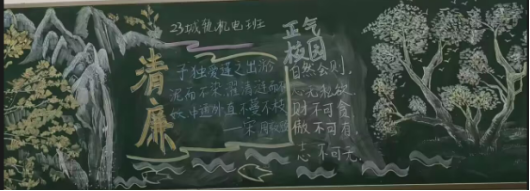 23城轨机电班
清廉
予独爱莲之出淤
泥而不染濯清涟而不
妖中通外直不蔓不枝
——宋周敦颐
正气
校园
自然会则,
心无私欲
财不可贪
做不可有,
志不可无。